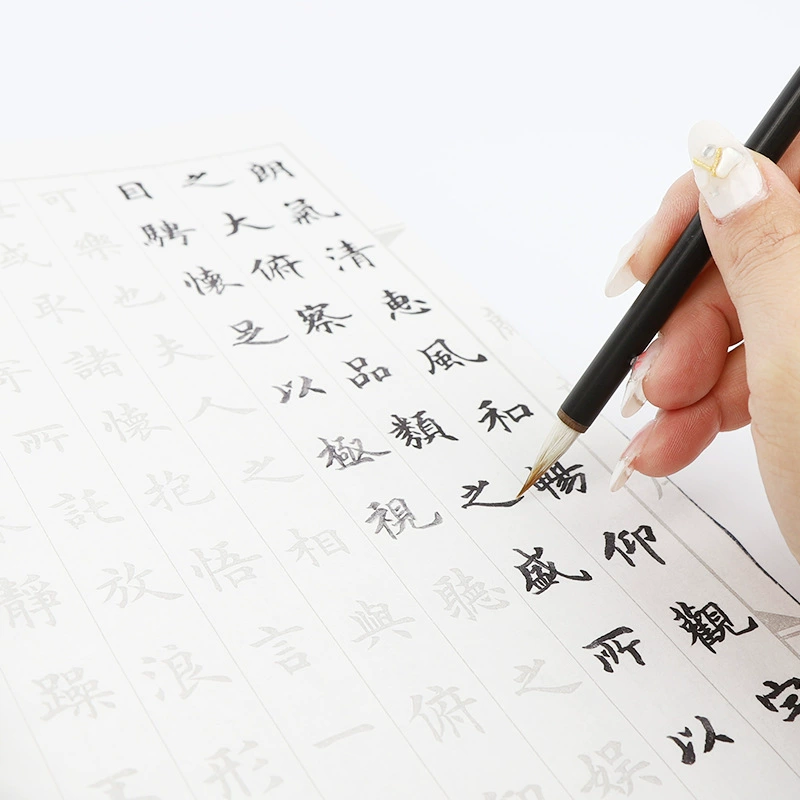 朗氣清惠風和暢仰觀宇
之大俯察品類之盛所以
目騁懷足以極視聽之娛
可樂也夫人之相與俯
或取諸懷抱悟言一
寄所託放浪形
靜躁不